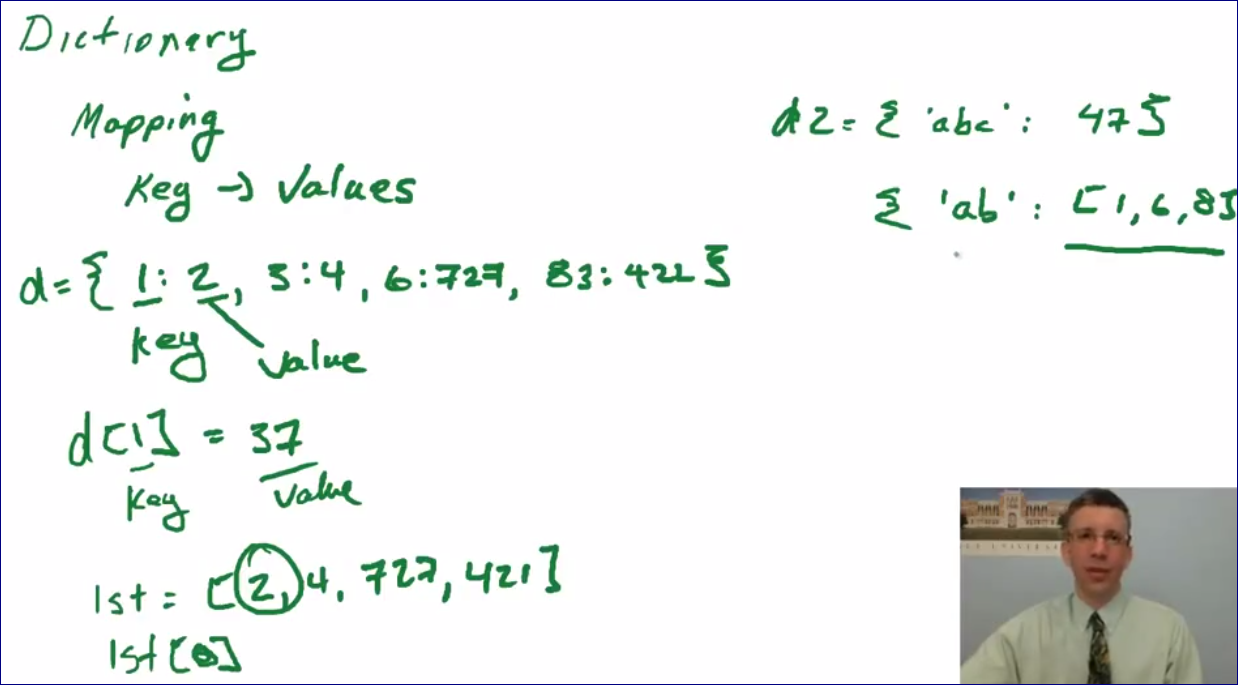 Dictionary
Mapping
Key → Values
d = { 1: 2, 3:4, 6:727, 83:421 }
key
value
d[1] = 37
key
value
lst = [2, 4, 727, 421]
lst[0]
d2 = { 'abc': 47}
{ 'ab': [1,6,8]